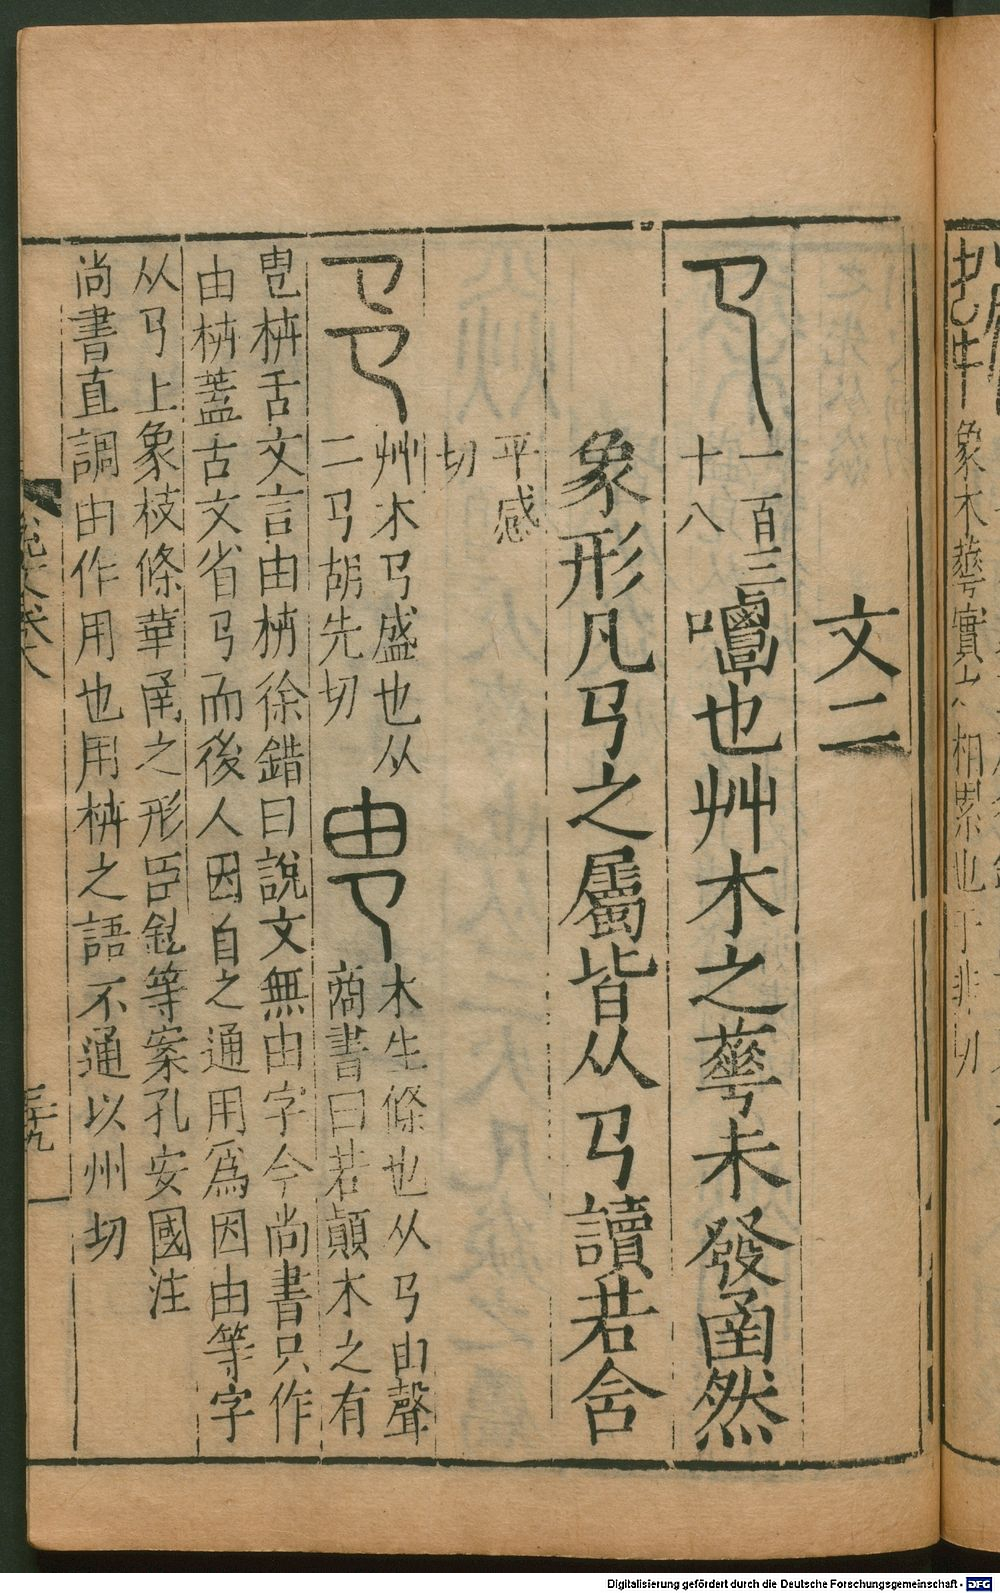 文二
𢎘一百三十八嘾也艸木之蕐未發圅然
象形凡𢎘之屬皆从𢎘讀若含
平感切
𢎜艸木𢎘盛也从二𢎘胡先切 甹木生條也从𢎘由聲商書曰若顚木之有
甹枿古文言由枿徐鍇曰說文無由字今尚書只作
由枿蓋古文省𢎘而後人因自之通用爲因由等字
从𢎘上象枝條華圅之形臣鉉等案孔安國注
尚書直調由作用也用枿之語不通以州切
說文卷
象木蕐實之相累也于非切
Digitalisierung gefördert durch die Deutsche Forschungsgemeinschaft - DFG